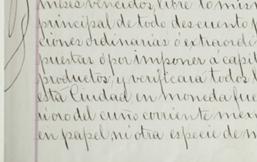 mises vencidos, libre lo mis
principal de todo descuento p
ciones ordinarias ó extraord
puestas ó por imponer a capit
productos; y verificara todos l
esta Ciudad en moneda fue
ú oro del cuño corriente mexi
en papel, ni otra especie de m